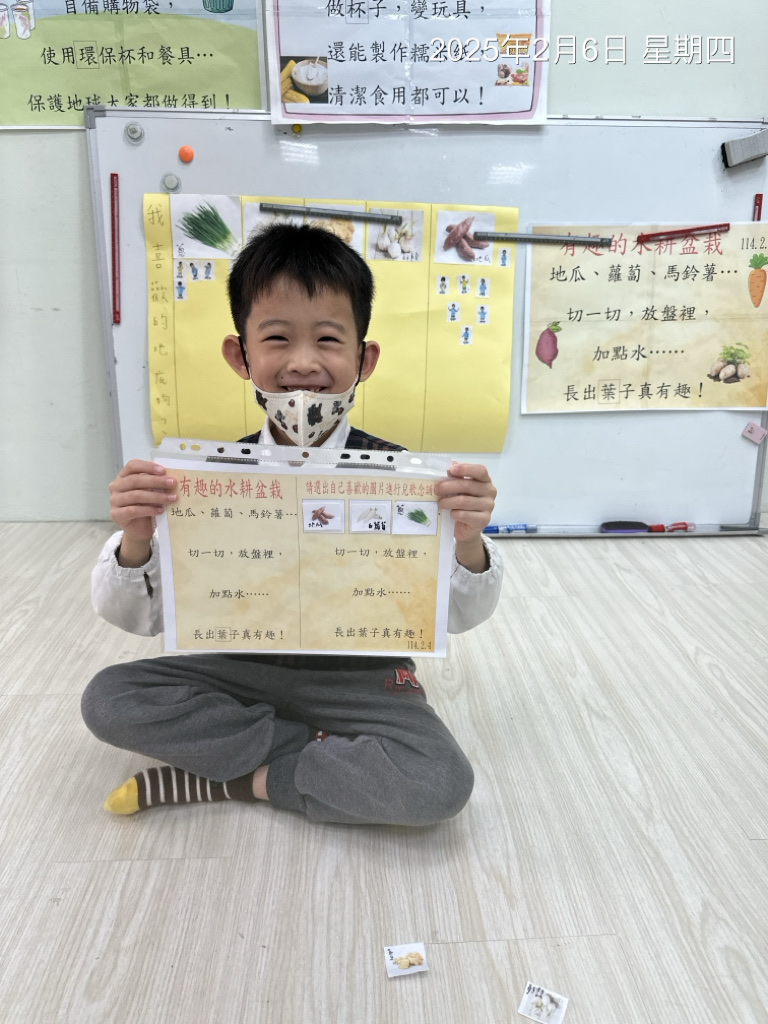 自備購物袋，
使用環保杯和餐具…
保護地球大家都做得到！
做杯子，變玩具，
還能製作糯米紙，
清潔食用都可以！
2025年2月6日 星期四
我喜歡的地
蔥
地瓜
有趣的水耕盆栽
114.2.
地瓜、蘿蔔、馬鈴薯…
切一切，放盤裡，
加點水……
長出葉子真有趣！
有趣的水耕盆栽
地瓜、蘿蔔、馬鈴薯…
切一切，放盤裡，
加點水……
長出葉子真有趣！
請選出自己喜歡的圖片進行兒歌念誦
地瓜
白蘿蔔
蔥
切一切，放盤裡，
加點水……
長出葉子真有趣！
114.2.4